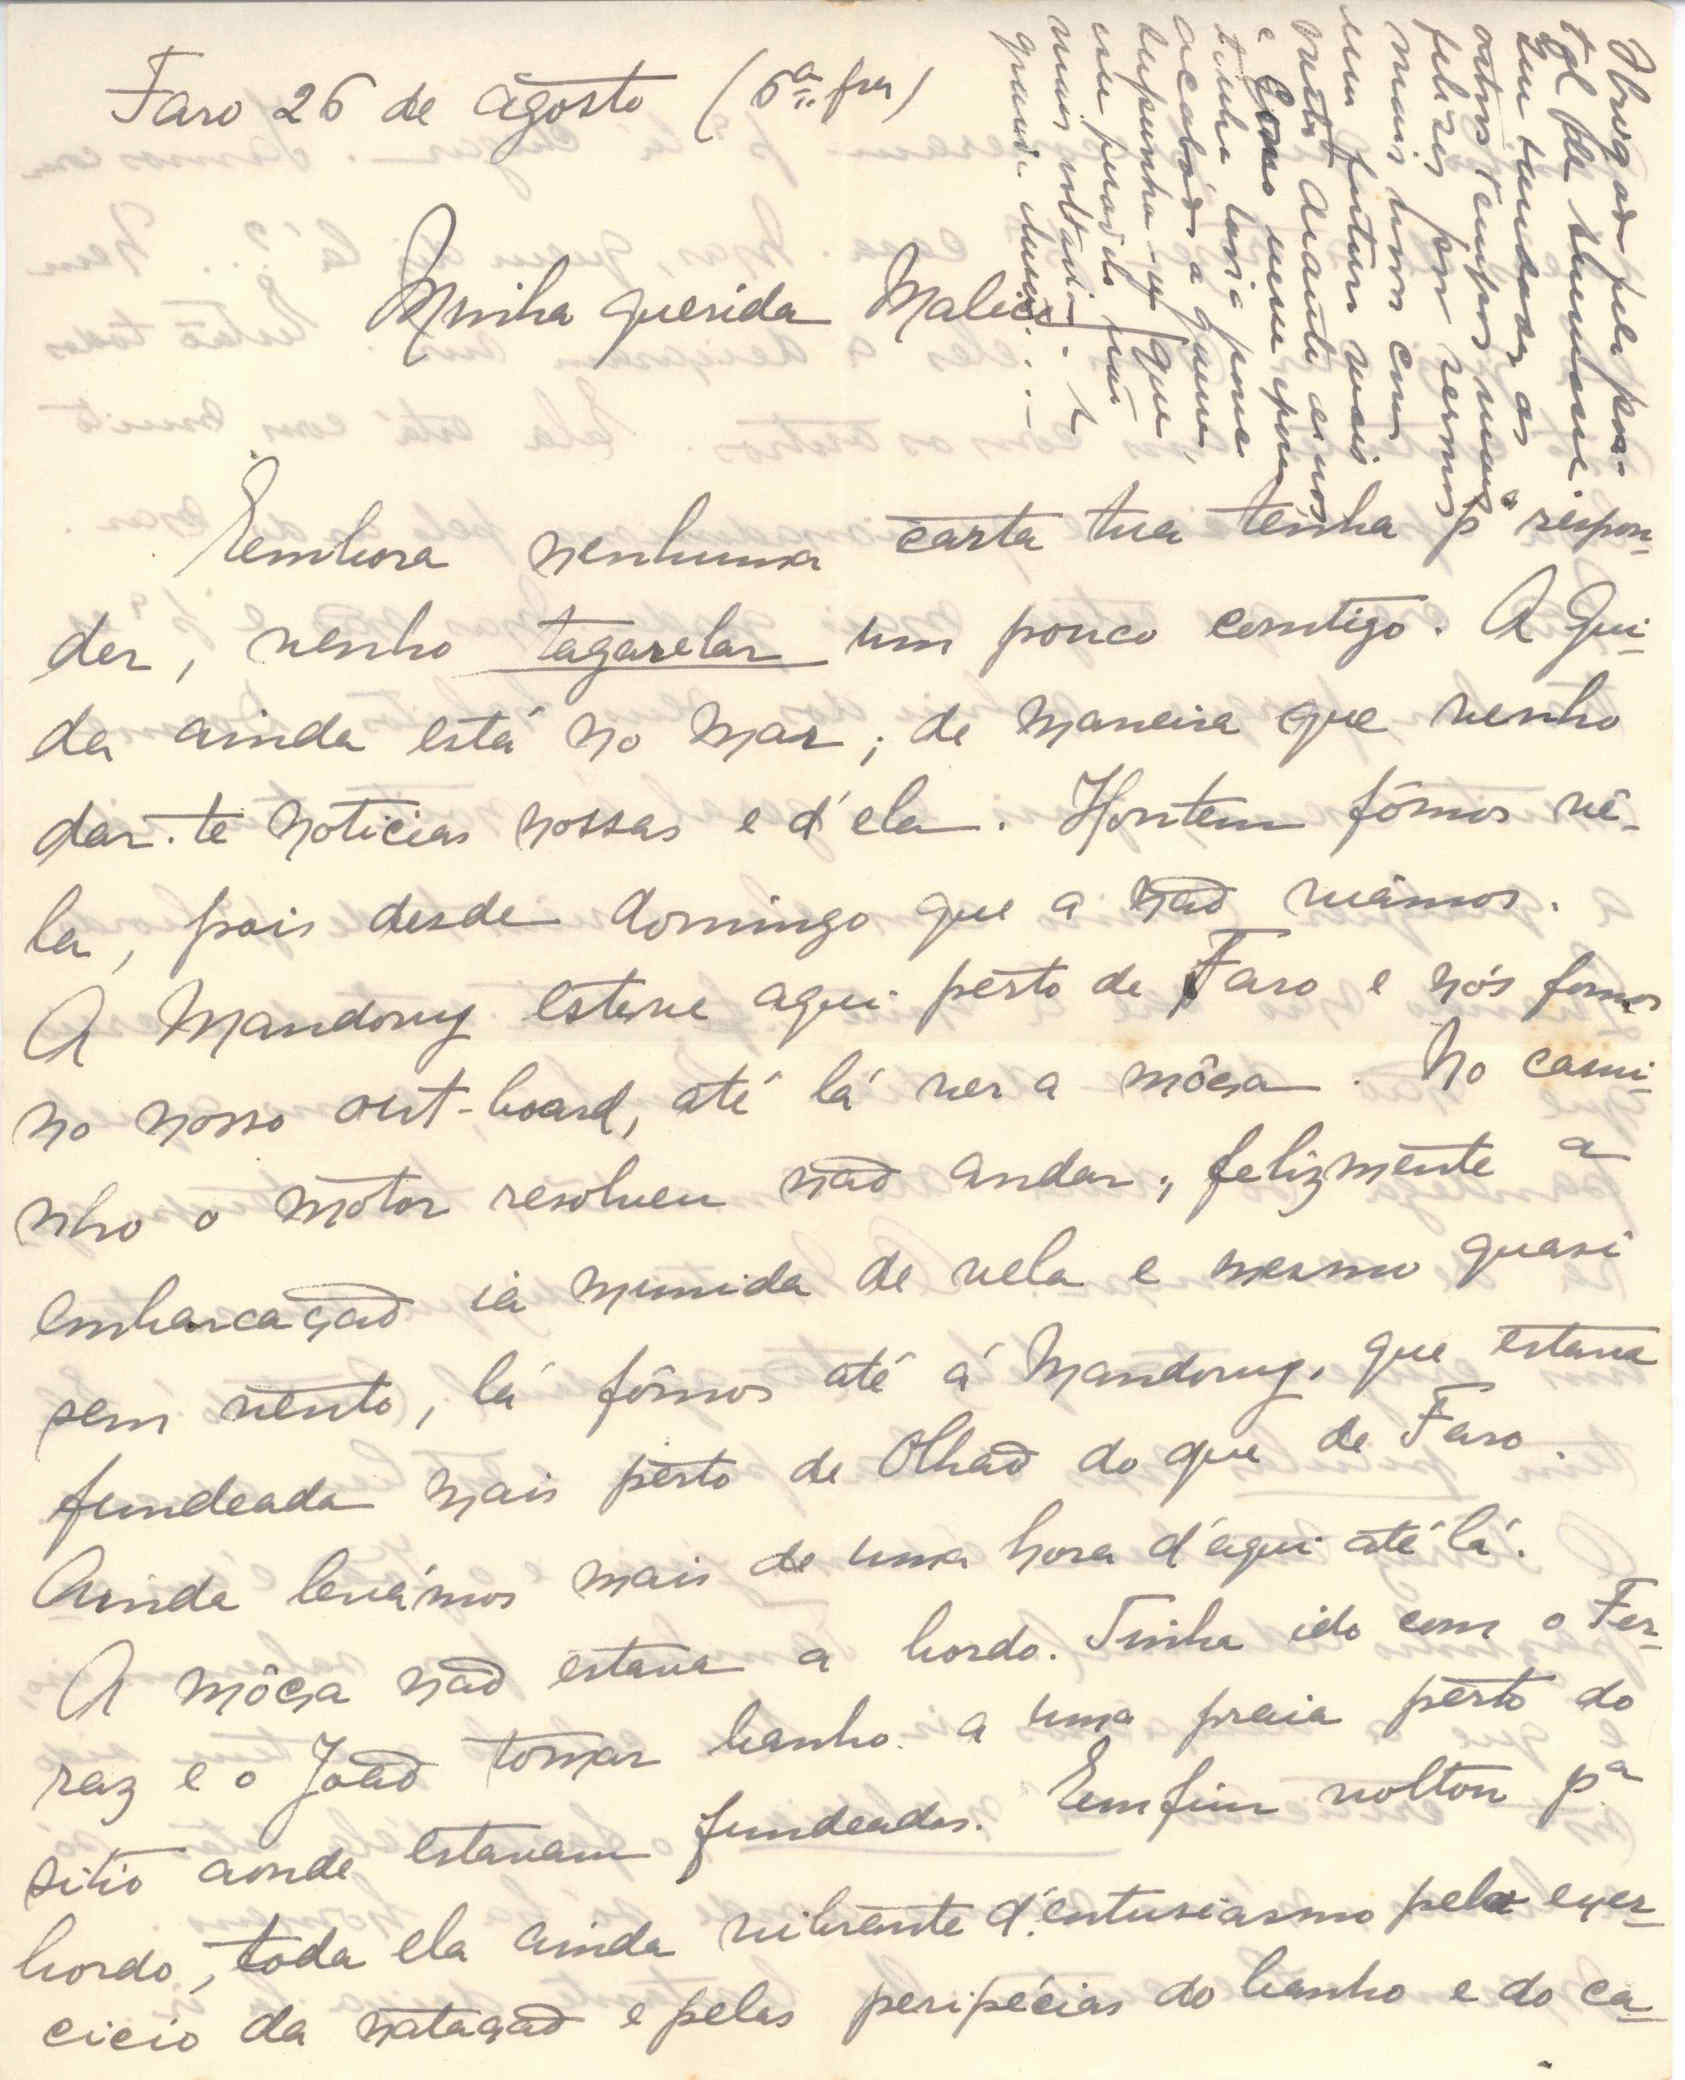 Faro 26 de agosto (6ª fra)
Minha querida
Eembora nenhuma carta tua tenha pª respon-
der, venho tagarelar um pouco comtigo. A Gui-
da ainda está no mar; de maneira que venho
dar-te noticias nossas e d'ela. Hontem fômos vê-
la, pois desde domingo que a não viâmos.
A Mandovy esteve aqui perto de Faro e nós fomos
no nosso out-board, até lá ver a môça. No cami-
nho o motor resolveu não andar; felizmente a
embarcação ia munida de vela e mesmo quasi
sem vento, lá fômos até á Mandovy, que estava
fundeada mais perto de Olhão do que de Faro.
Ainda levámos mais de uma hora d'aqui até lá.
A môça não estava a bordo. Tinha ido com o Fer-
raz e o João tomar banho a uma praia perto do
sitio aonde estavam fundeados. Eemfim voltou pª
bordo, toda ela ainda vibrante d'entusiasmo pelo exer-
cicio da natação e pelas peripécias do banho e do ca-
Obrigada pelo
tenho saudades dos
outros tempos
felizes por sermos
mais novos com
um futuro mais
vasto diante de nós
e como nesse epoca
tinha
acabado a guerra,
supunha-se que
um periodo
grande